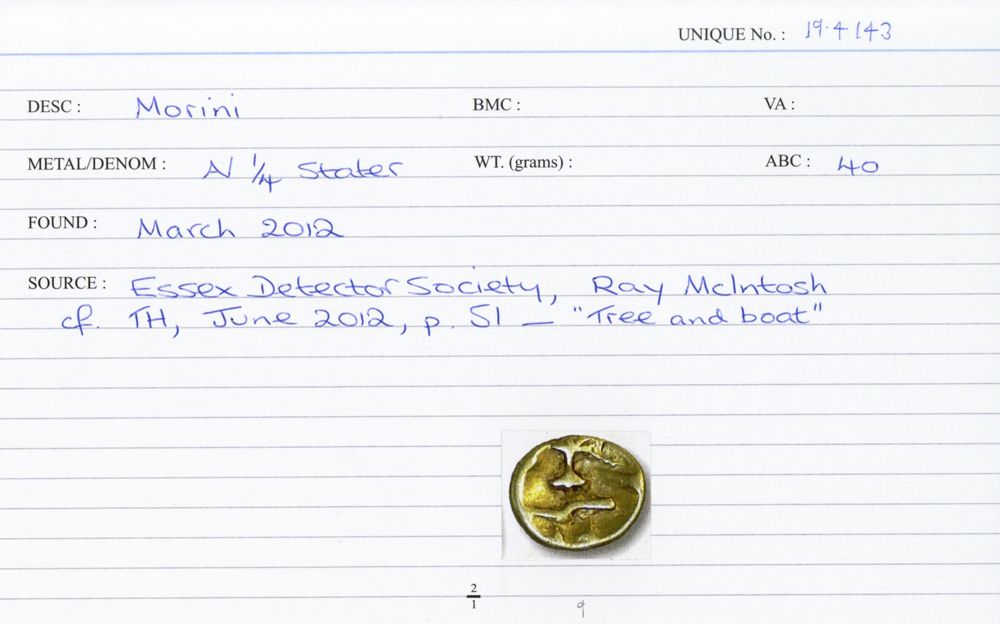 UNIQUE No. : 19.4143
DESC : Morini BMC : VA :
METAL/DENOM : AV 1/4 Stater WT. (grams) : ABC : 40
FOUND : March 2012
SOURCE : Essex Detector Society, Ray McIntosh
cf. TH, June 2012, p. 51 — "Tree and boat"
2
1
9